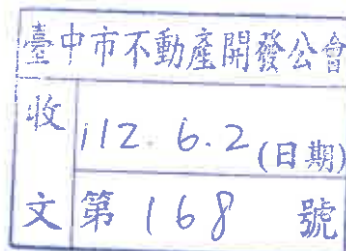 臺中市不動產開發公會
收
112.6.2(日期)
文
第168號